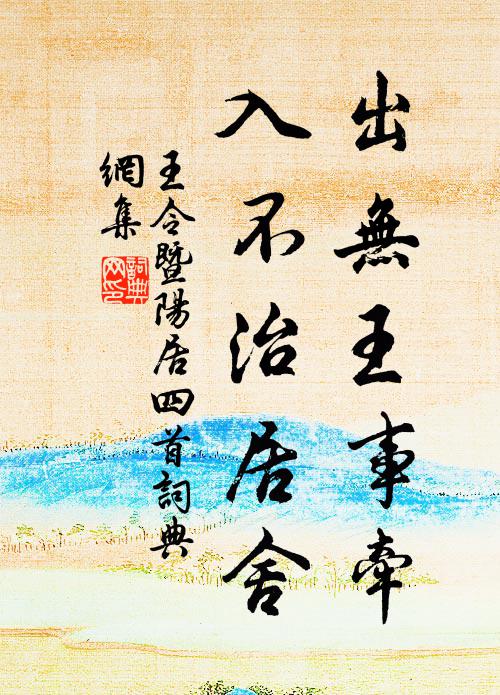 出無王事牽
入不治居舍
王令暨陽居四首詞典
網集
詞典网印